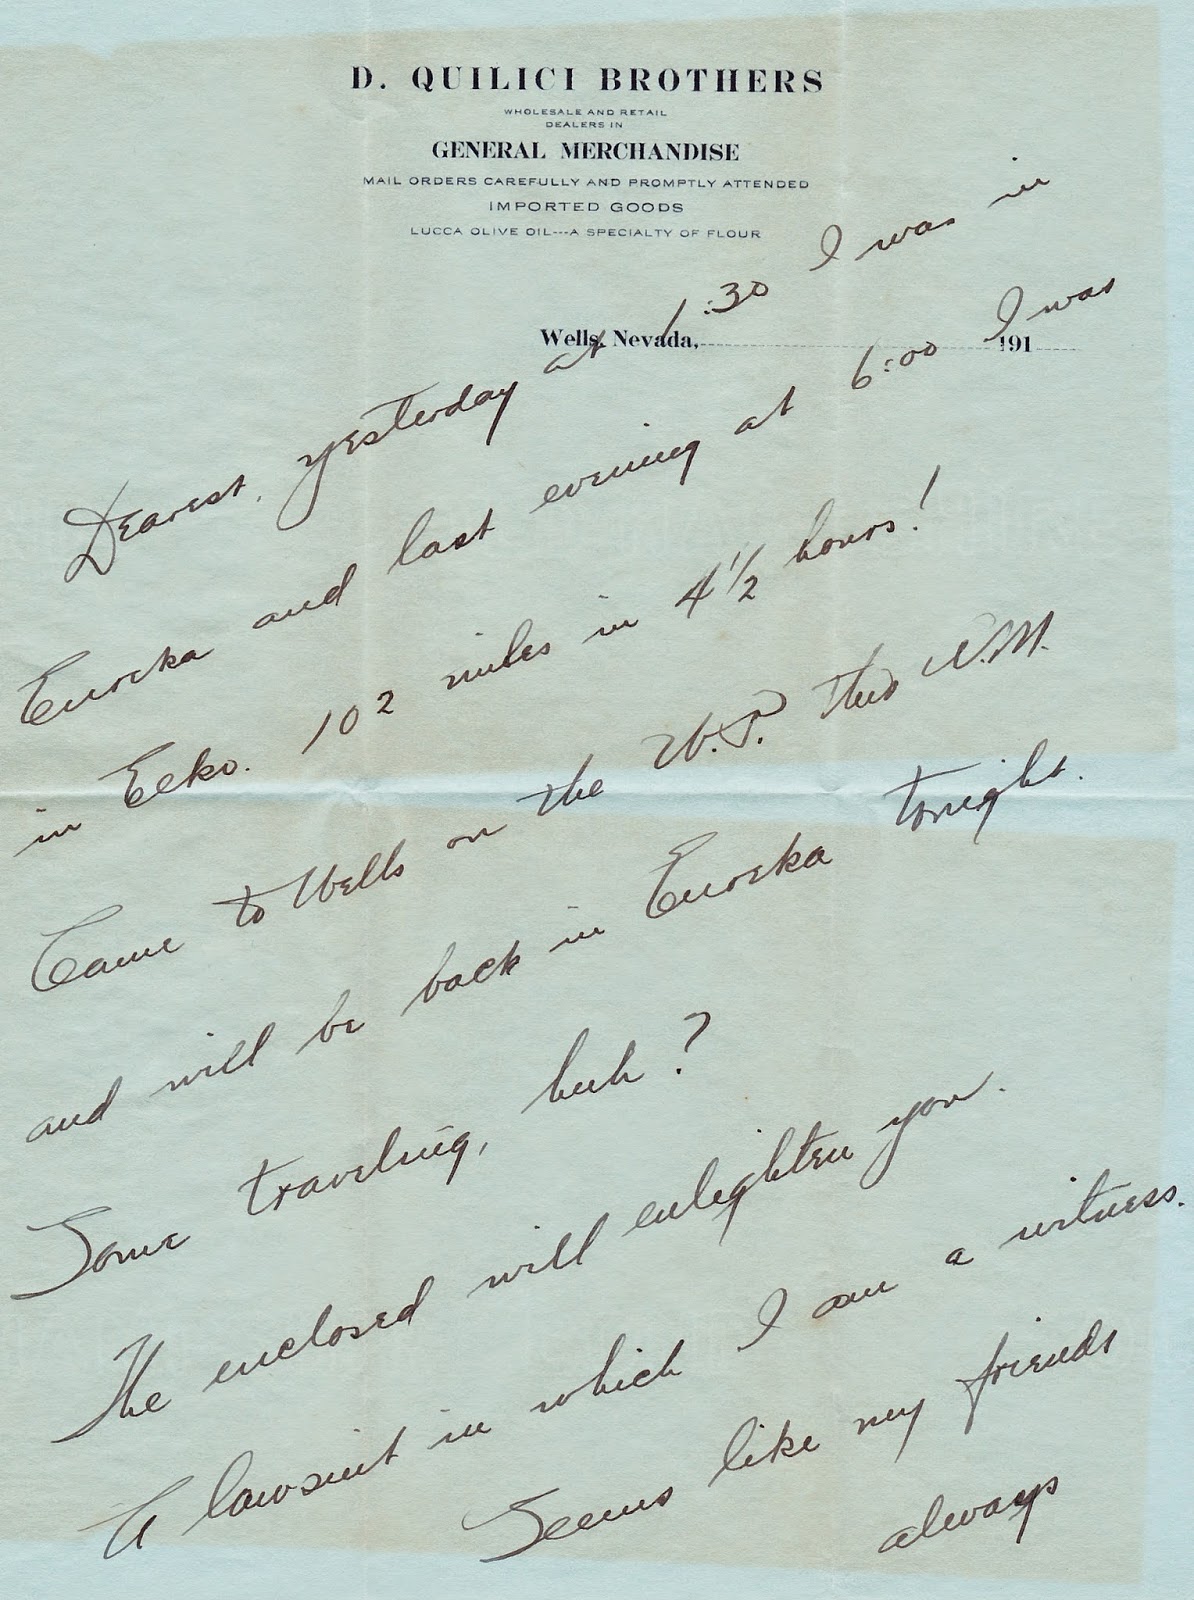 D. QUILICI BROTHERS
WHOLESALE AND RETAIL
DEALERS IN
GENERAL MERCHANDISE
MAIL ORDERS CAREFULLY AND PROMPTLY ATTENDED
IMPORTED GOODS
LUCCA OLIVE OIL---A SPECIALTY OF FLOUR
Wells, Nevada, 191
Dearest, yesterday at 1:30 I was in
Eureka and last evening at 6:00 I was
in Elko. 102 miles in 4 1/2 hours!
Came to Wells on the W.P. this A.M.
and will be back in Eureka tonight.
Some traveling, huh?
The enclosed will enlighten you.
A lawsuit in which I am a witness.
Seems like my friends
always